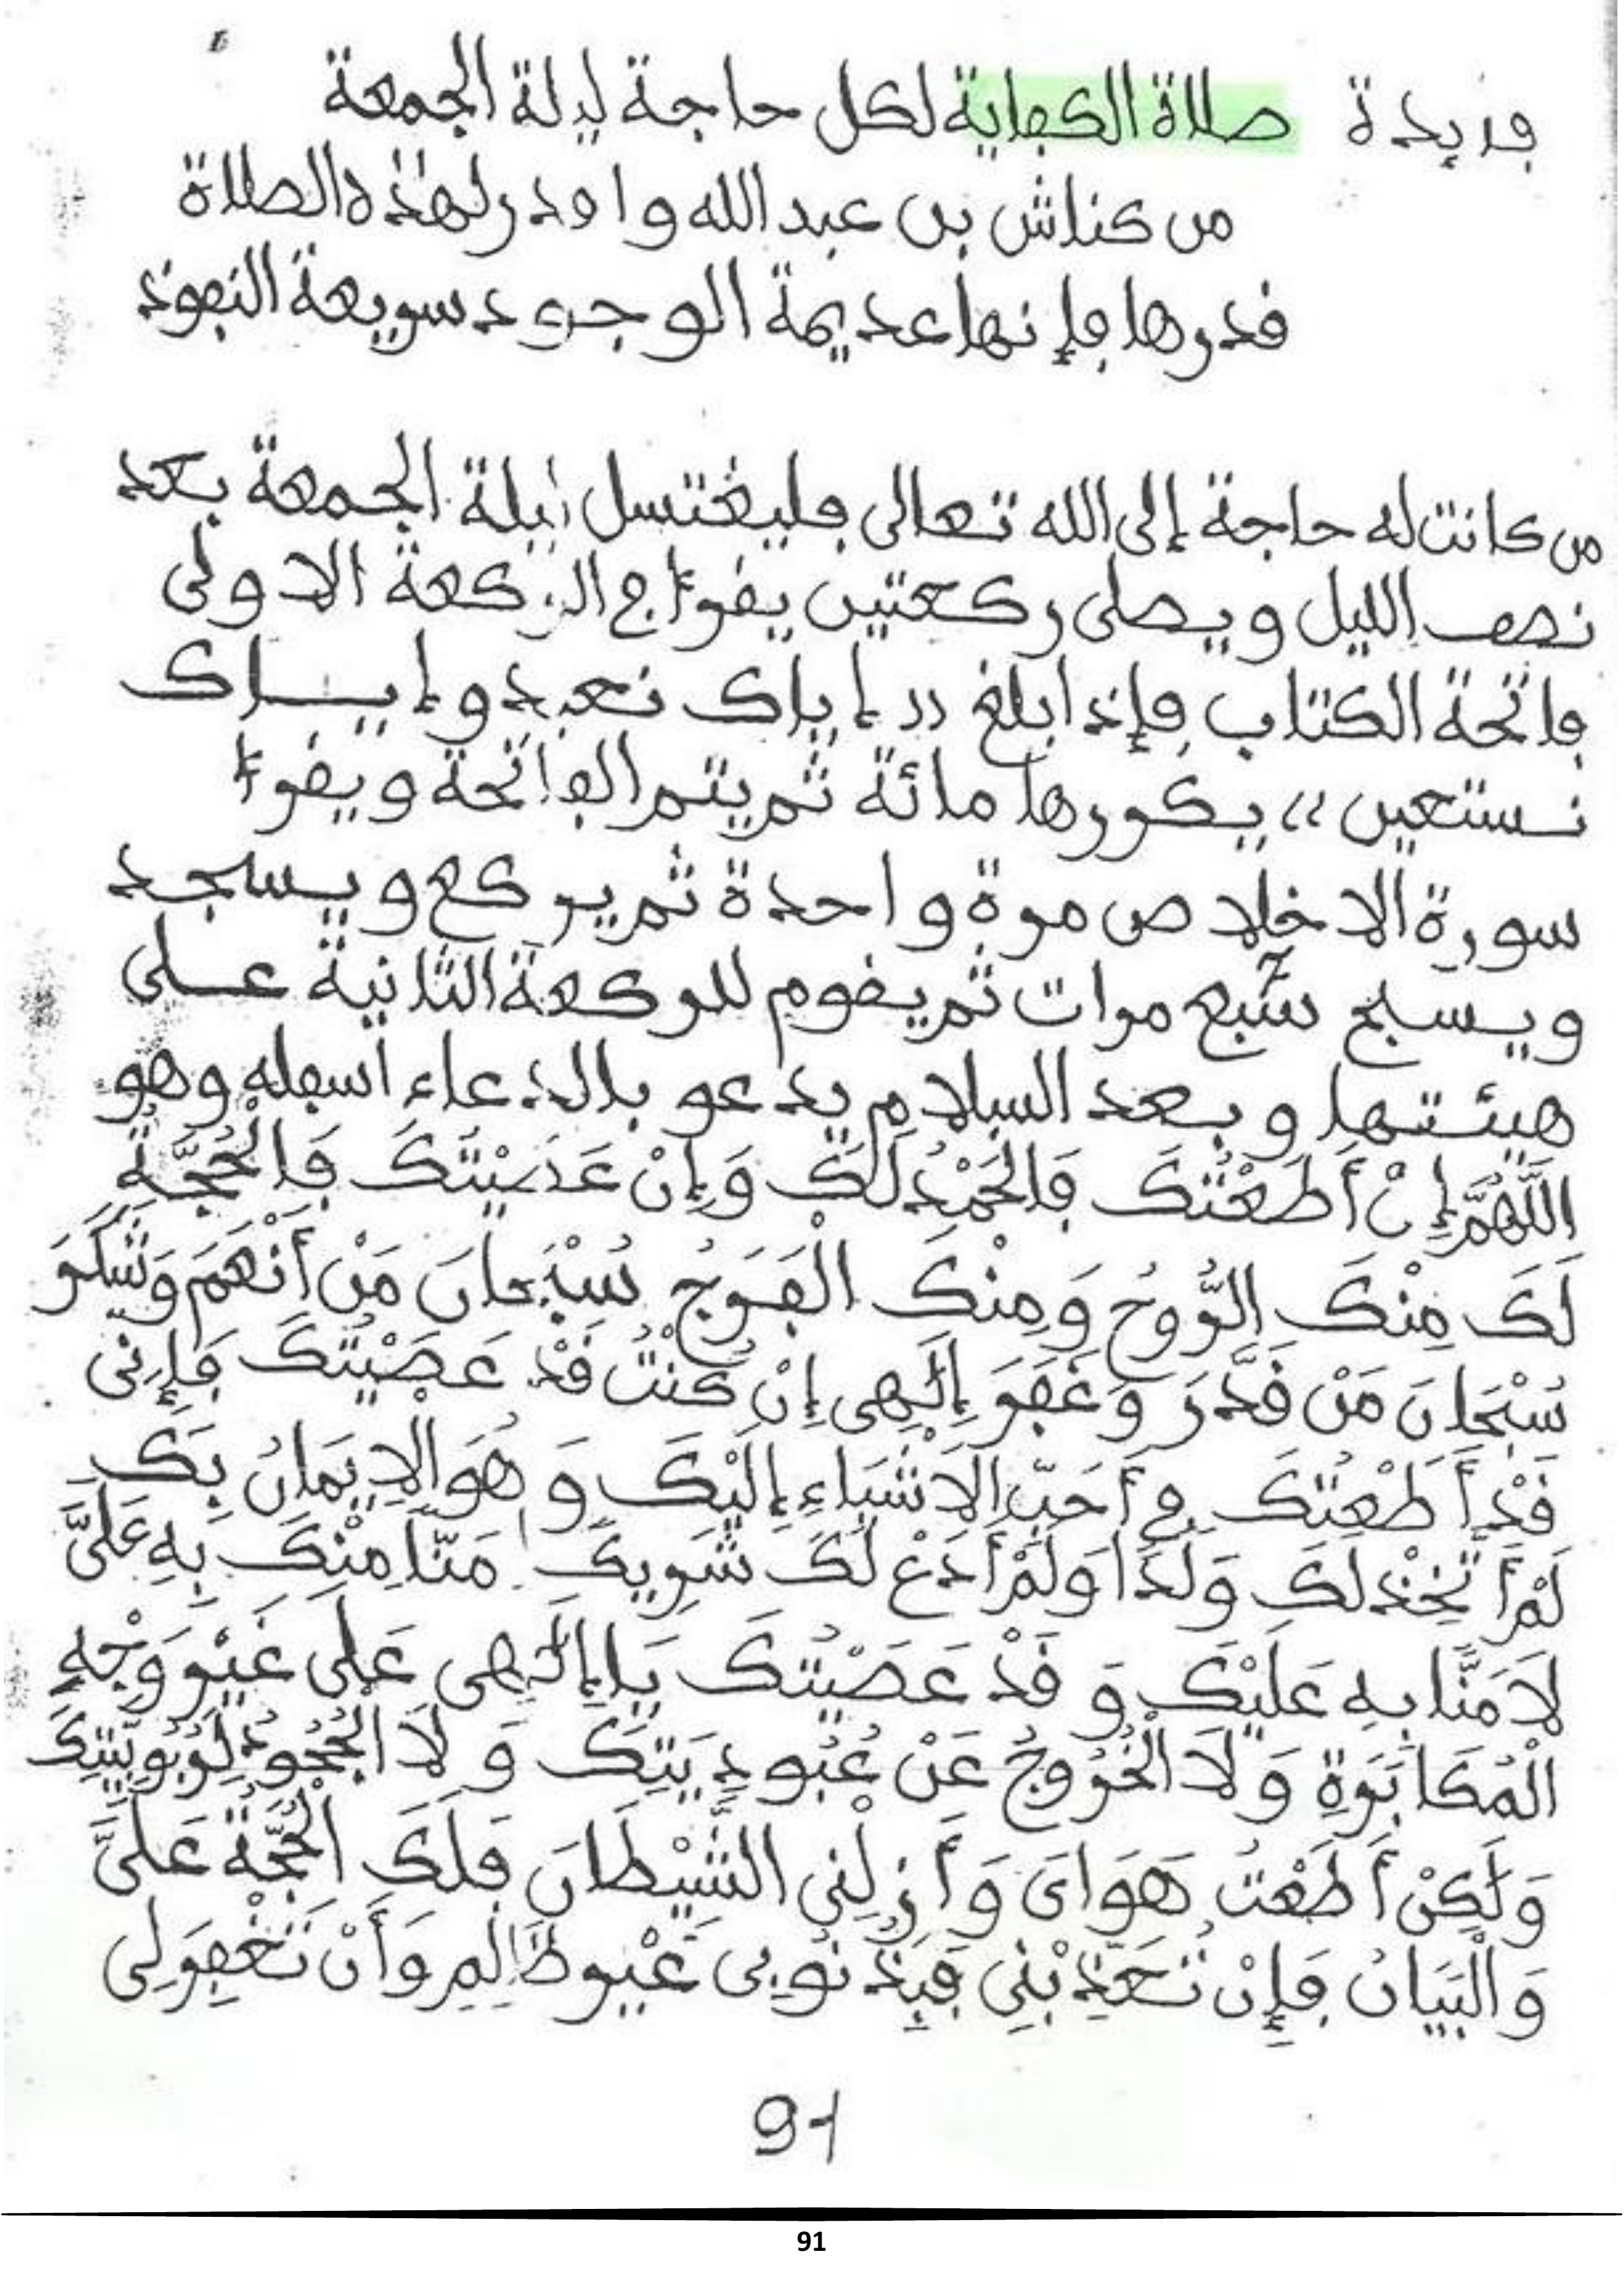 فريدة صلاة الكفاية لكل حاجة ليلة الجمعة
من كناش بن عبد الله واقدر لهذه الصلاة
قدرها فإنها عديمة الوجود سريعة النفوذ
من كانت له حاجة إلى الله تعالى فليغتسل ليلة الجمعة بعد
نصف الليل ويصلى ركعتين يقرأ في الركعة الاولى
فاتحة الكتاب فإذا بلغ (( إياك نعبد وإيــاك
نستعين )) يكررها مائة ثم يتم الفاتحة ويقرأ
سورة الاخلاص مرة واحدة ثم يركع ويسجد
ويسبح سبع مرات ثم يقوم للركعة الثانية على
هيئتها وبعد السلام يدعو بالدعاء أسفله وهو
اللَّهُمَّ إِنْ أَطَعْتُكَ فَالْحَمْدُ لَكَ وَإِنْ عَصَيْتُكَ فَالْحُجَّةِ
لَكَ مِنْكَ الرُّوحُ وَمِنْكَ الْفَرَجُ سُبْحَانَ مَنْ أَنْعَمَ وَشَكَرَ
سُبْحَانَ مَنْ قَدَّرَ وَغَفَرَ إِلَهِى إِنْ كُنْتُ قَدْ عَصَيْتُكَ فَإِنِّى
قَدْ أَطَعْتُكَ فِي أَحَبِّ الاَشْيَاءِ إِلَيْكَ وَهُوَ الاِيمَانُ بِكَ
لَمْ أَتَّخِذْ لَكَ وَلَدًا وَلَمْ أَدْعُ لَكَ شَرِيكًا مَنًّا مِنْكَ بِهِ عَلَيَّ
لاَ مَنًّا بِهِ عَلَيْكَ وَ قَدْ عَصَيْتُكَ يَا إِلَهِى عَلَى غَيْرِ وَجْهِ
الْمُكَابَرَةِ وَلاَ الْخُرُوجُ عَنْ عُبُودِيَتِكَ وَلاَ الْجُحُودُ لِرُبُوبِيَّتِكَ
وَلَكِنْ أَطَعْتُ هَوَاىَ وَأَزلَنِي الشَّيْطَانَ فَلَكَ الْحُجَّةُ عَلَيَّ
وَالْبَيَانُ فَإِنْ تُعَذِّبْنِي فَبِذُنُوبِى غَيْرِ ظَالِمٍ وَأَنْ تَغْفِرَ لِى
91
91